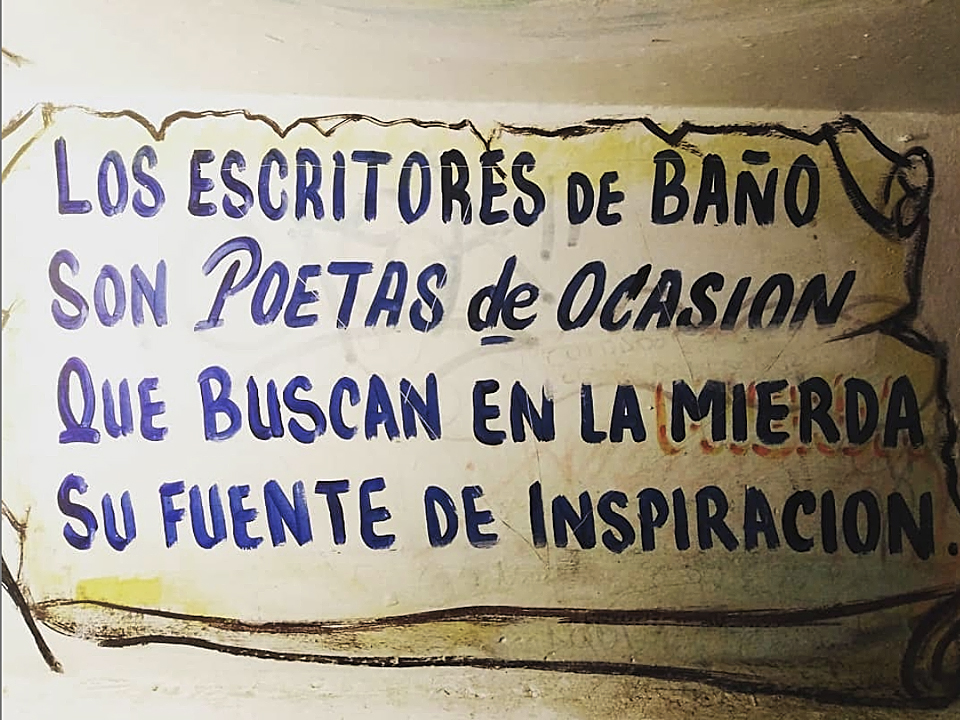 LOS ESCRITORES DE BAÑO
SON POETAS de OCASION
QUE BUSCAN EN LA MIERDA
SU FUENTE DE INSPIRACION.